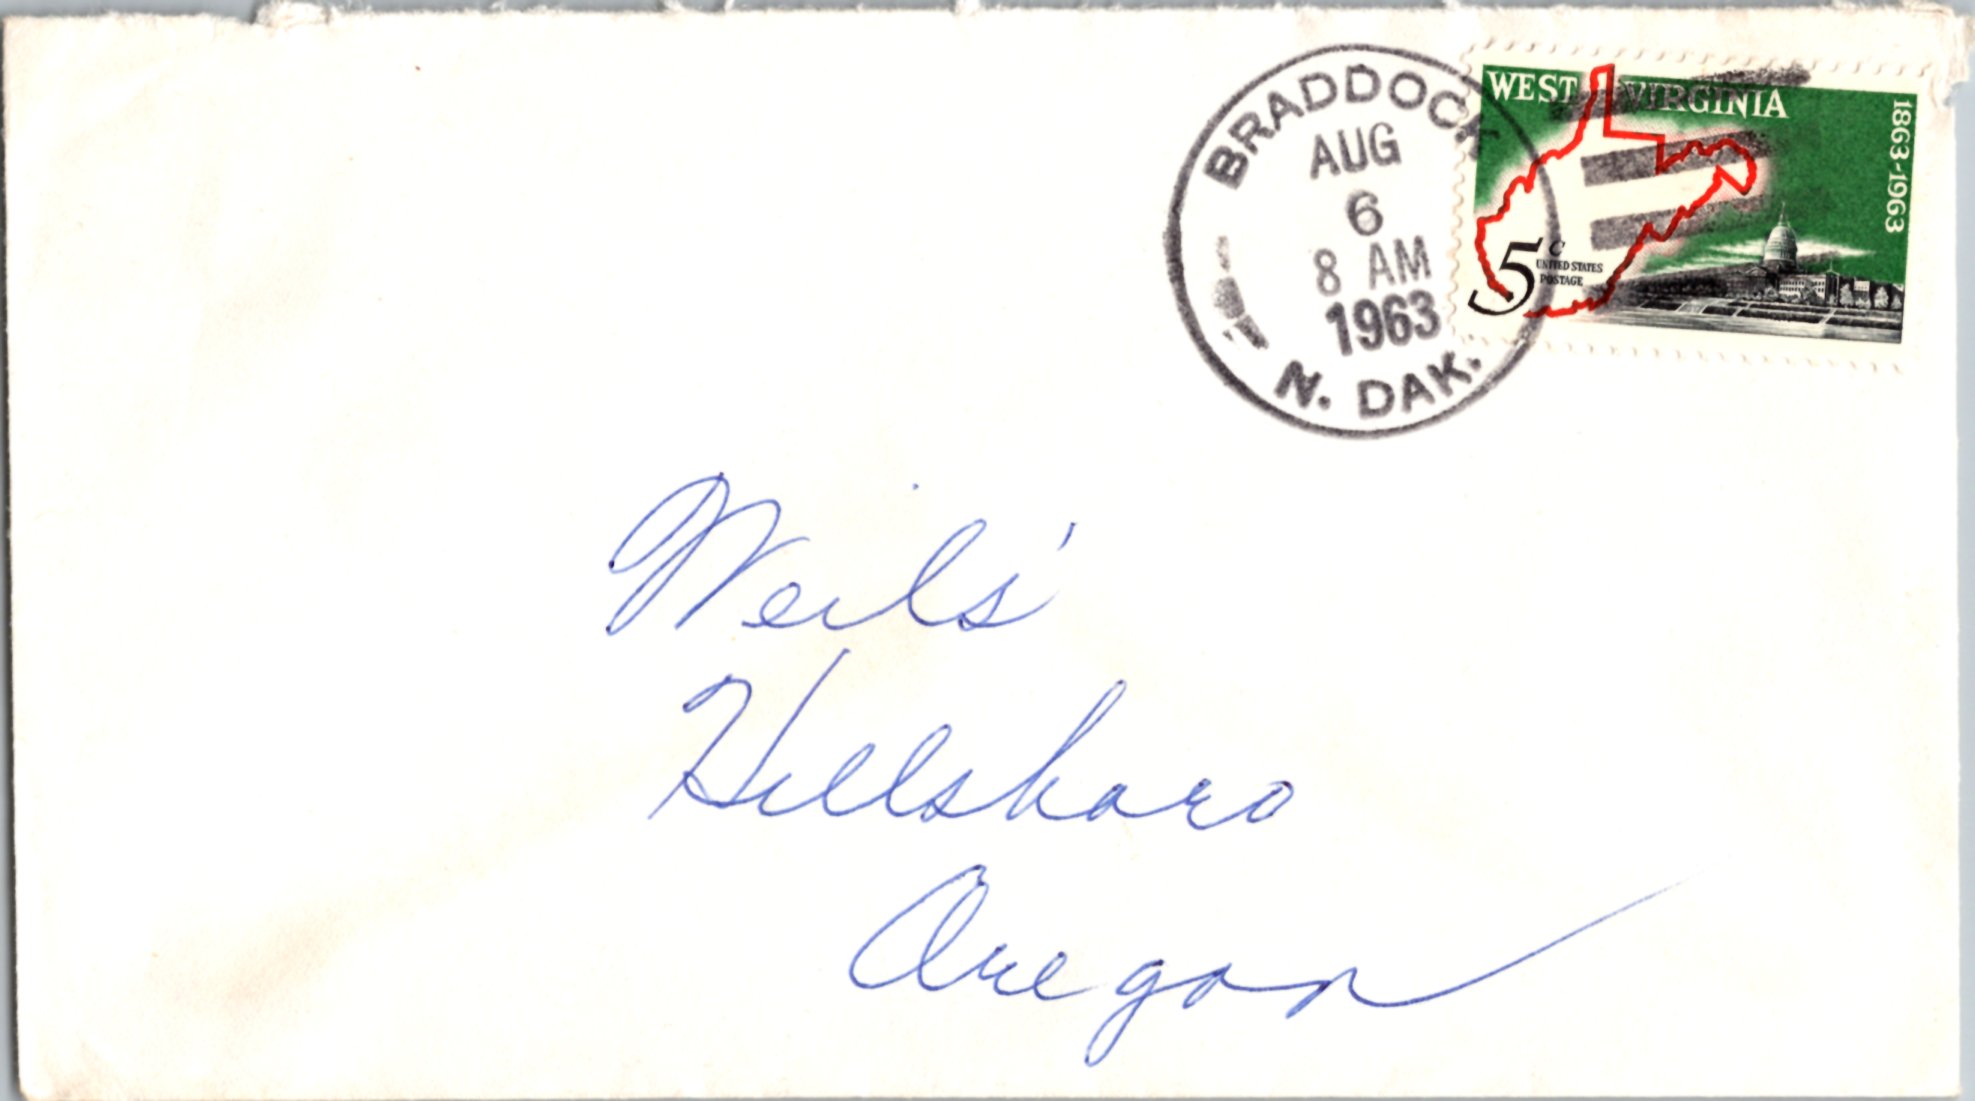 BRADDOCK
AUG
6
8 AM
1963
N. DAK.
WEST VIRGINIA
1863-1963
5c
UNITED STATES
POSTAGE
Weils'
Hillsboro
Oregon